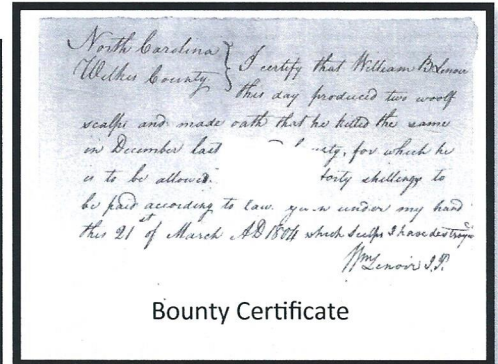 North Carolina
Wilkes County } I certify that William B Lenoir
this day produced two woolf
scalps and made oath that he killed the same
in December last for which he
is to be allowed. forty shillings to
be paid according to law. under my hand
this 21st of March AD 1804 which scalps I have destroyed
Wm Lenoir J.P.
Bounty Certificate